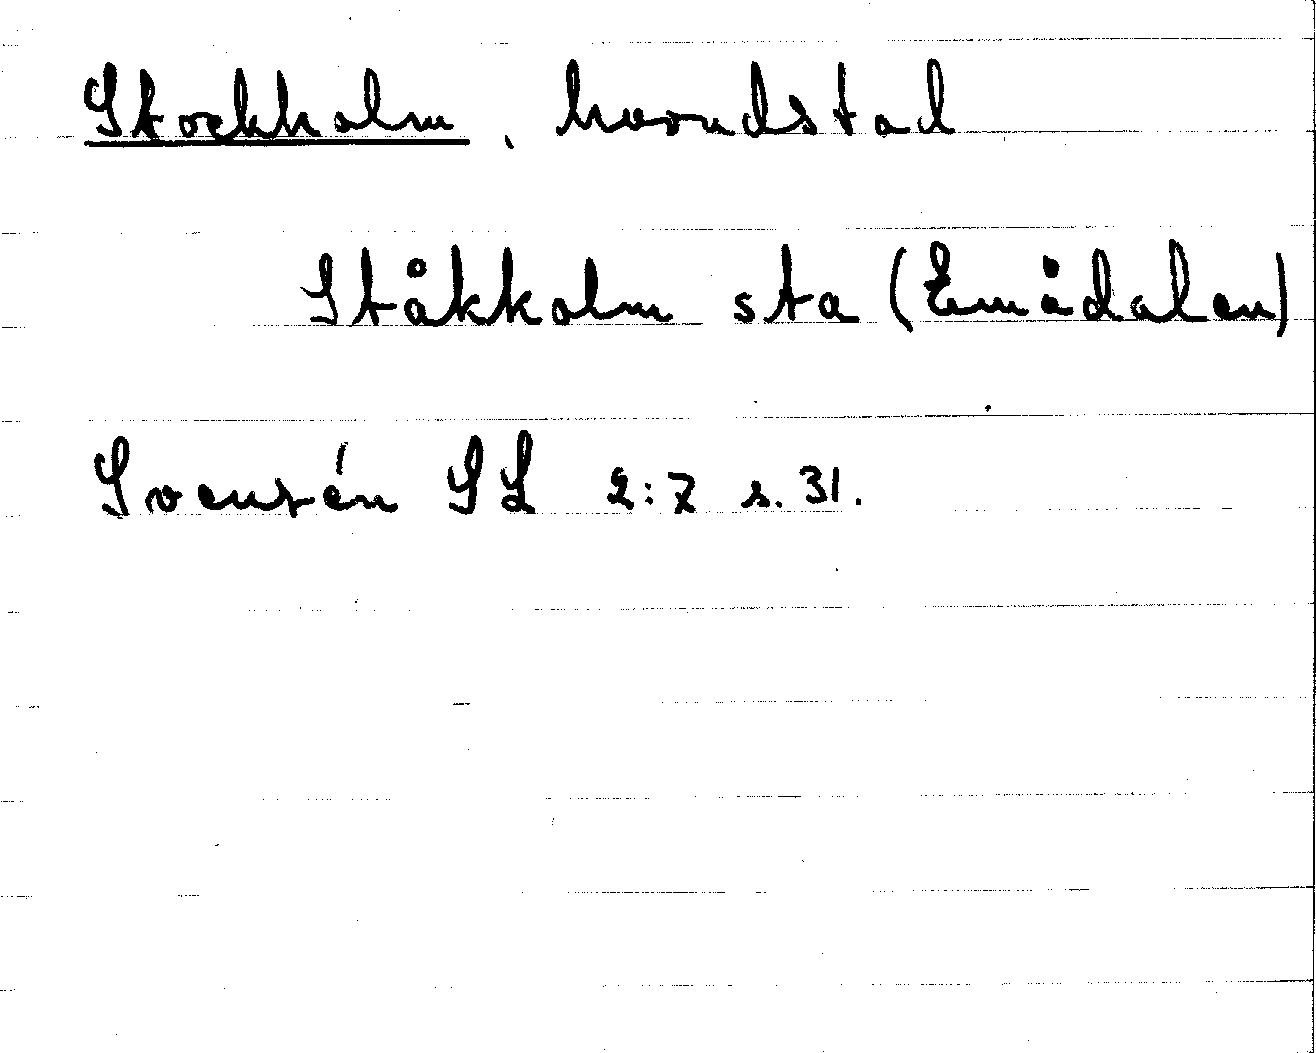 Stockholm, huvudstad
Ståkkolm sta (Emådalen)
Svensén SL 2:7 s. 31.